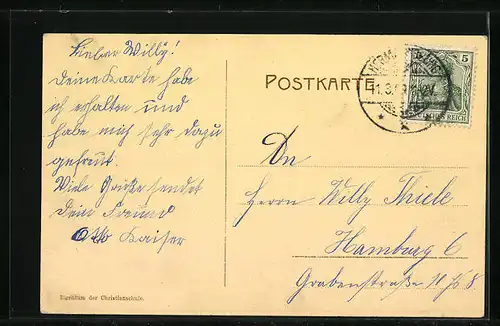 Lieber Willy!
Deine Karte habe
ich erhalten und
habe mich sehr dazu
gefreut.
Viele Grüße sendet
Dein Freund
Otto Kaiser
Eigentum der Christianschule.
POSTKARTE
11.3.
5
An
Herrn Willy Thiele
Hamburg 6
Grabenstraße 11 Hs 8